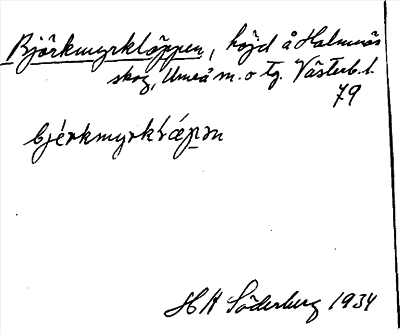 Björkmyrklöppen, höjd å Holmnäs
skog, Umeå m. o tg. Västerb. l.
79
bjérkmyrkĺǽpən
H H Söderberg 1934